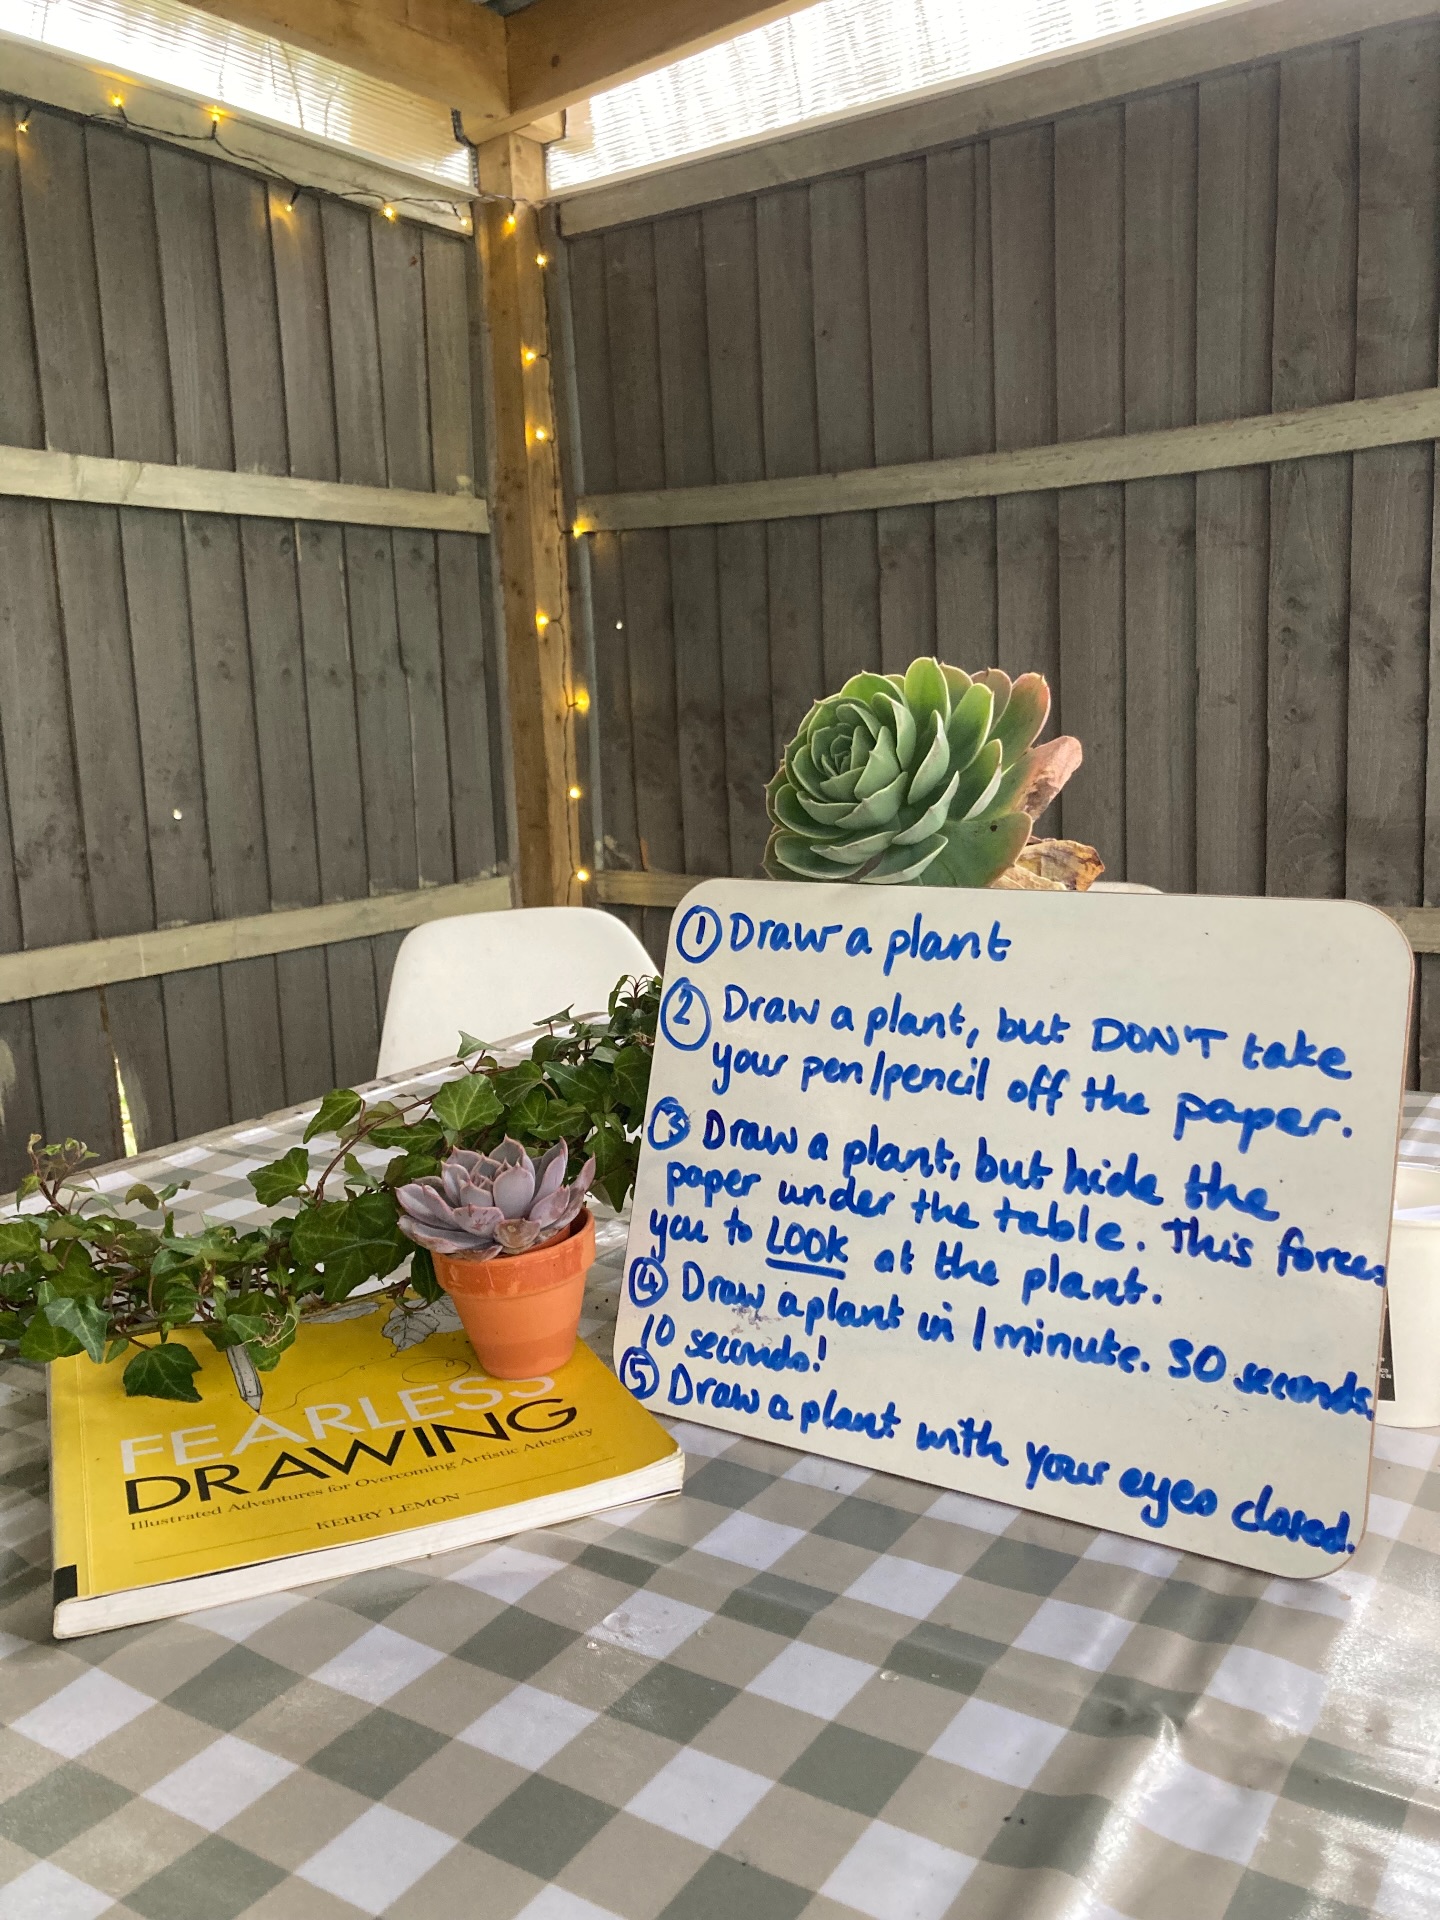 ① Draw a plant
② Draw a plant, but DON'T take
your pen/pencil off the paper.
③ Draw a plant, but hide the
paper under the table. This forces
you to LOOK at the plant.
④ Draw a plant in 1 minute. 30 seconds.
10 seconds!
⑤ Draw a plant with your eyes closed.
FEARLESS
DRAWING
Illustrated Adventures for Overcoming Artistic Adversity
KERRY LEMON